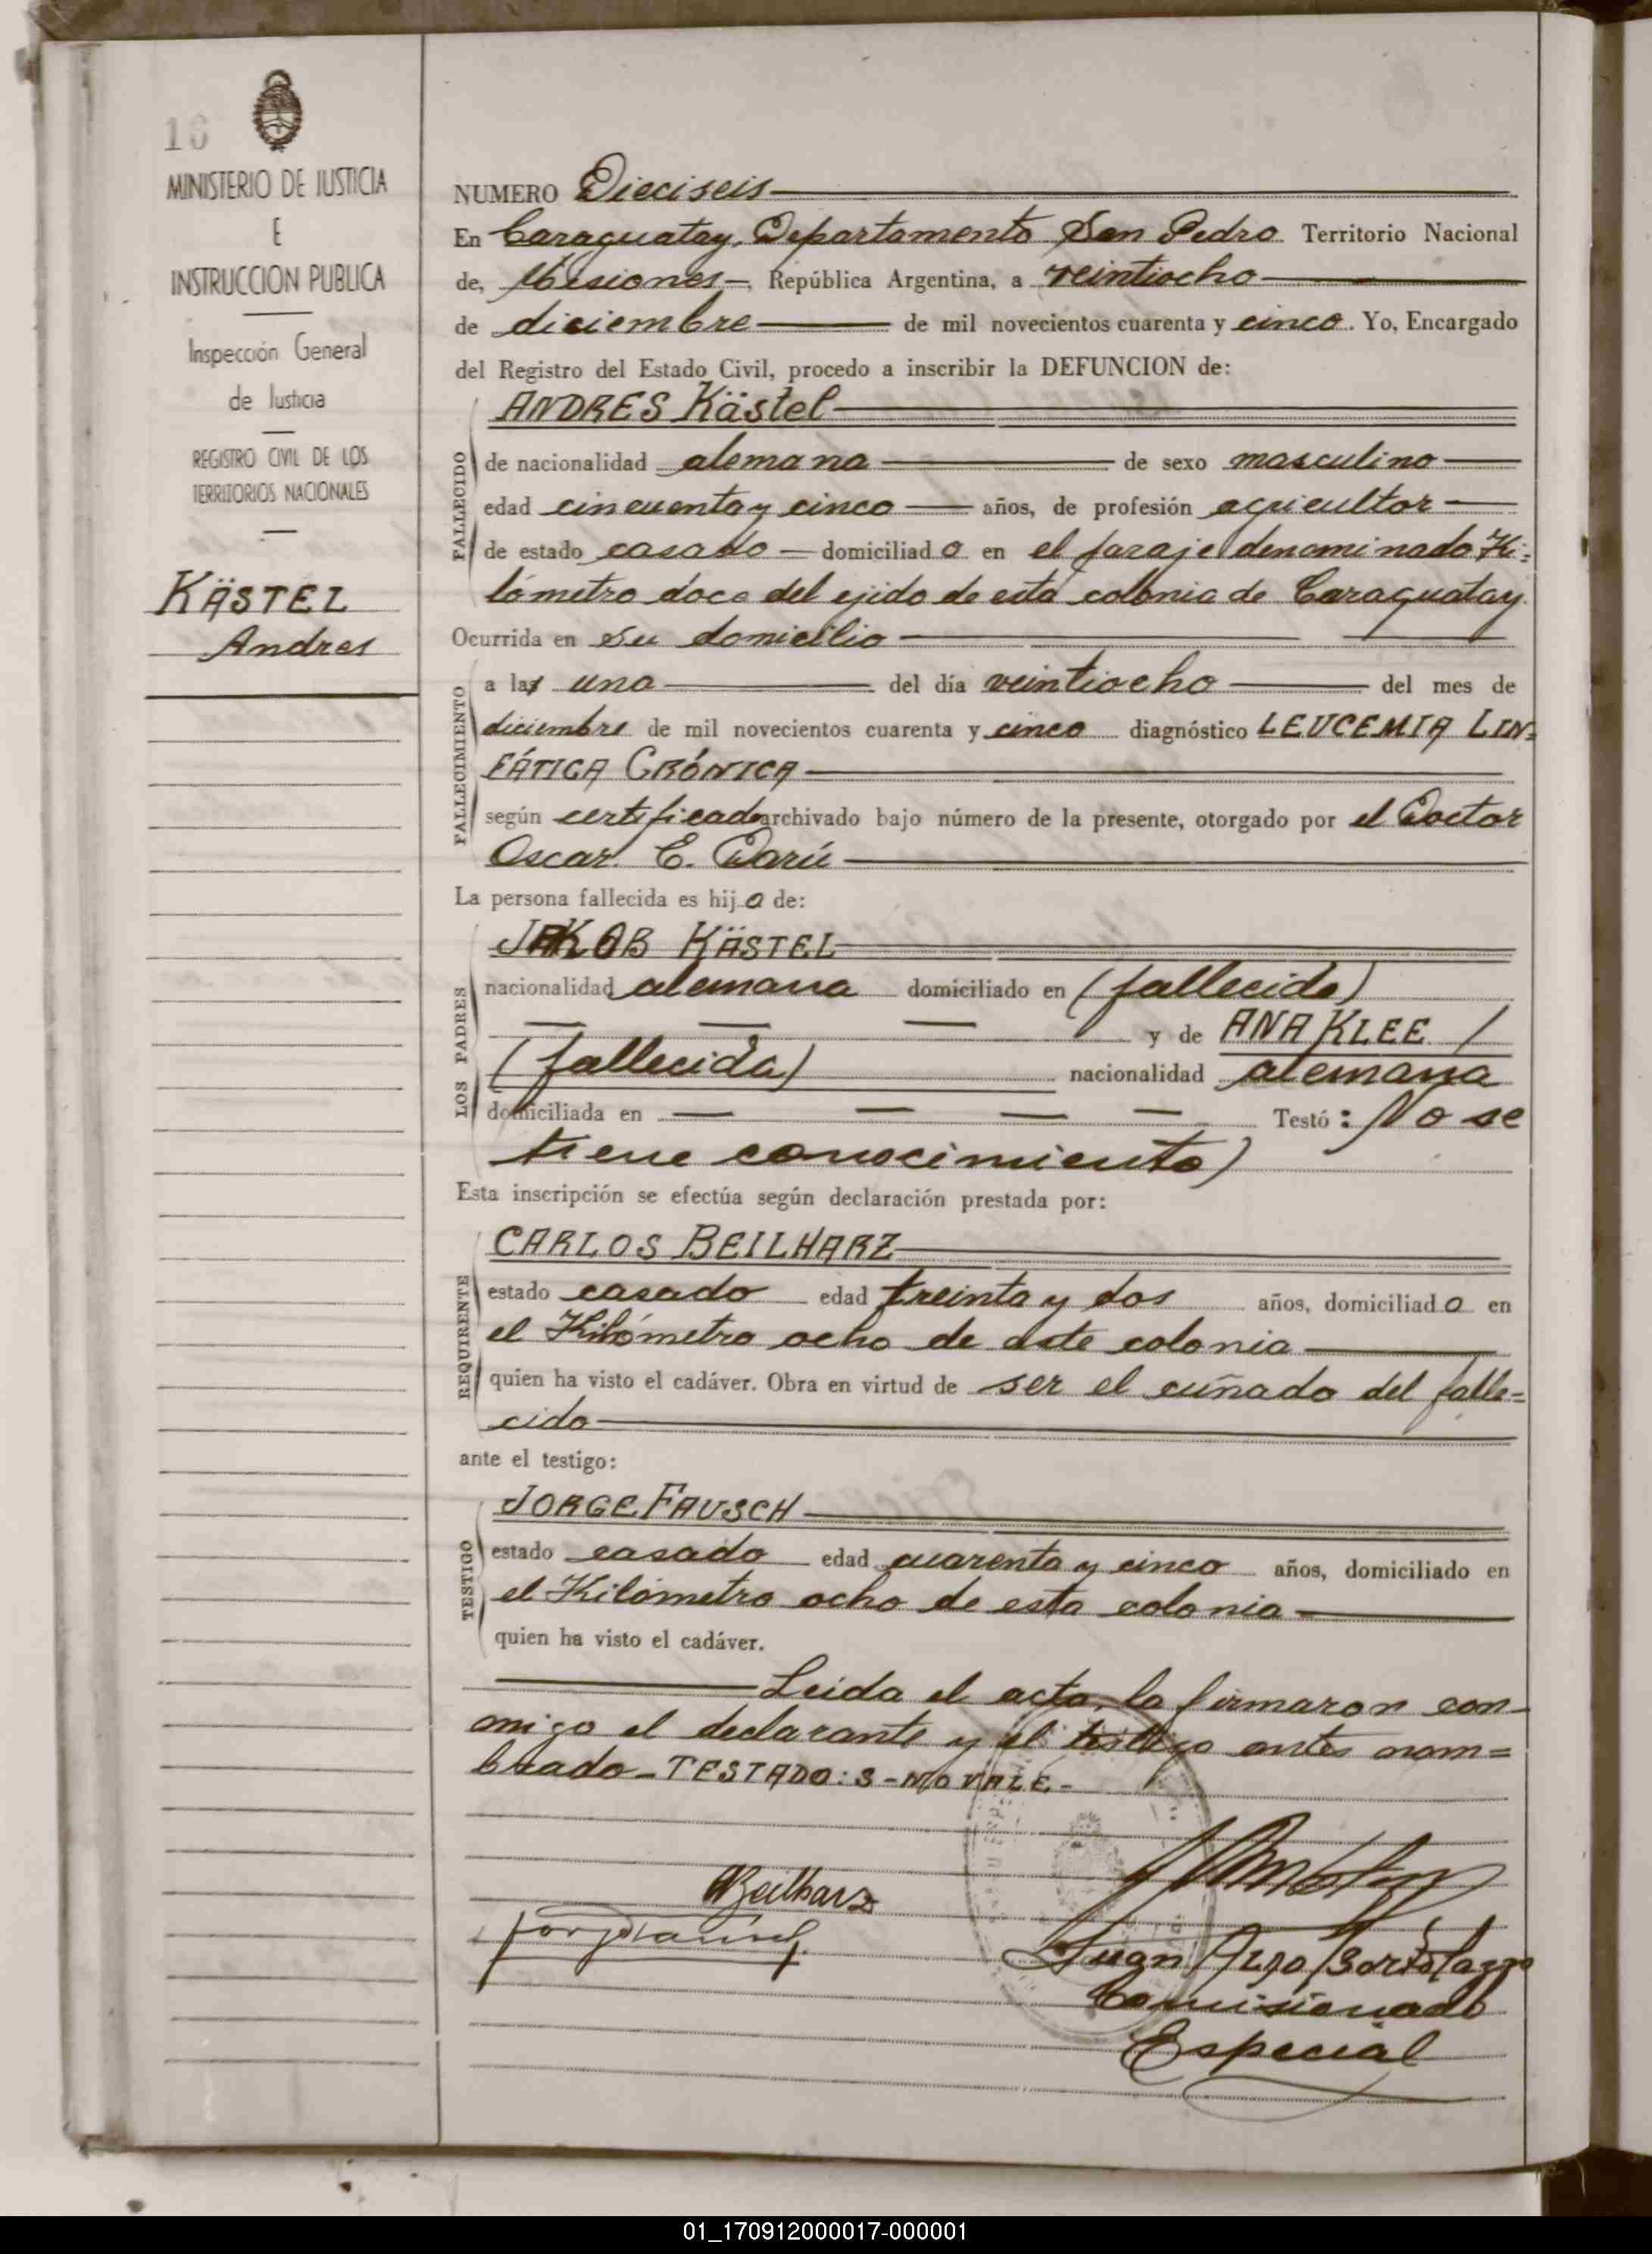 16
MINISTERIO DE JUSTICIA
E
INSTRUCCION PUBLICA
Inspección General
de Justicia
REGISTRO CIVIL DE LOS
TERRITORIOS NACIONALES
KÄSTEL
Andres
NUMERO Dieciseis
En Caraguatay, Departamento San Pedro Territorio Nacional
de, Misiones-, República Argentina, a veintiocho
de diciembre de mil novecientos cuarenta y cinco. Yo, Encargado
del Registro del Estado Civil, procedo a inscribir la DEFUNCION de:
ANDRES Kästel
FALLECIDO
de nacionalidad alemana de sexo masculino
edad cincuenta y cinco años, de profesión agricultor
de estado casado domiciliado en el paraje denominado Ki=
lómetro doce del ejido de esta colonia de Caraguatay.
Ocurrida en su domicilio
FALLECIMIENTO
a las una del día veintiocho del mes de
diciembre de mil novecientos cuarenta y cinco diagnóstico LEUCEMIA LIN=
FÁTICA CRÓNICA
según certificado archivado bajo número de la presente, otorgado por el Doctor
Oscar E. Darú
La persona fallecida es hijo de:
LOS PADRES
JAKOB KÄSTEL
nacionalidad alemana domiciliado en (fallecido)
y de ANA KLEE /
(fallecida) nacionalidad alemana
domiciliada en Testó: No se
tiene conocimiento)
Esta inscripción se efectúa según declaración prestada por:
REQUIRENTE
CARLOS BEILHARZ
estado casado edad treinta y dos años, domiciliado en
el Kilómetro ocho de este colonia
quien ha visto el cadáver. Obra en virtud de ser el cuñado del falle=
cido
ante el testigo:
TESTIGO
JORGE FAUSCH
estado casado edad cuarenta y cinco años, domiciliado en
el Kilómetro ocho de esta colonia
quien ha visto el cadáver.
Leida el acta, la firmaron con-
migo el declarante y el testigo antes nom=
brado-TESTADO: S-NO VALE-
Beilharz
Juan Bortolazzo
Comisionado
Especial
01_170912000017-000001